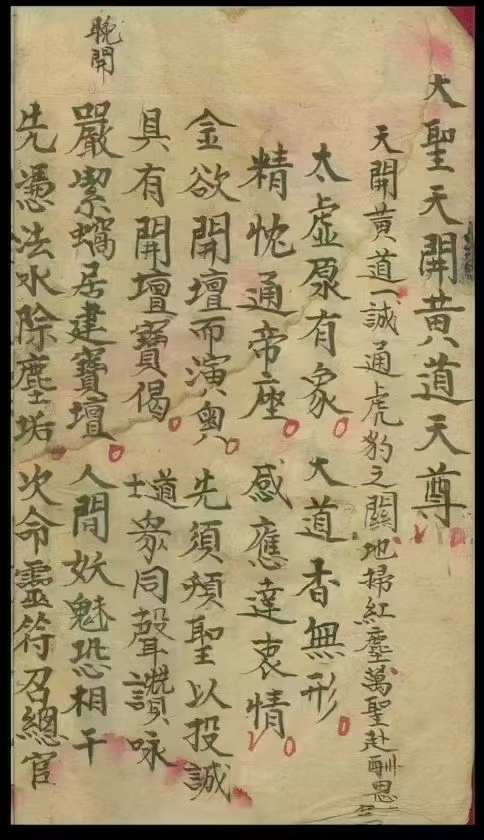 大聖天開黃道天尊
天開黃道一誠通虎豹之關地掃紅塵萬聖赴酬恩
太虛原有象 大道香無形
精忱通帝座 感應達衷情
金欲開壇而演奧 先須聖以投誠
具有開壇寶偈 道士眾同聲讚咏
嚴絜蝸居建寶壇 人間妖魅恐相干
先憑法水除塵垢 次命靈符召總官
晚開